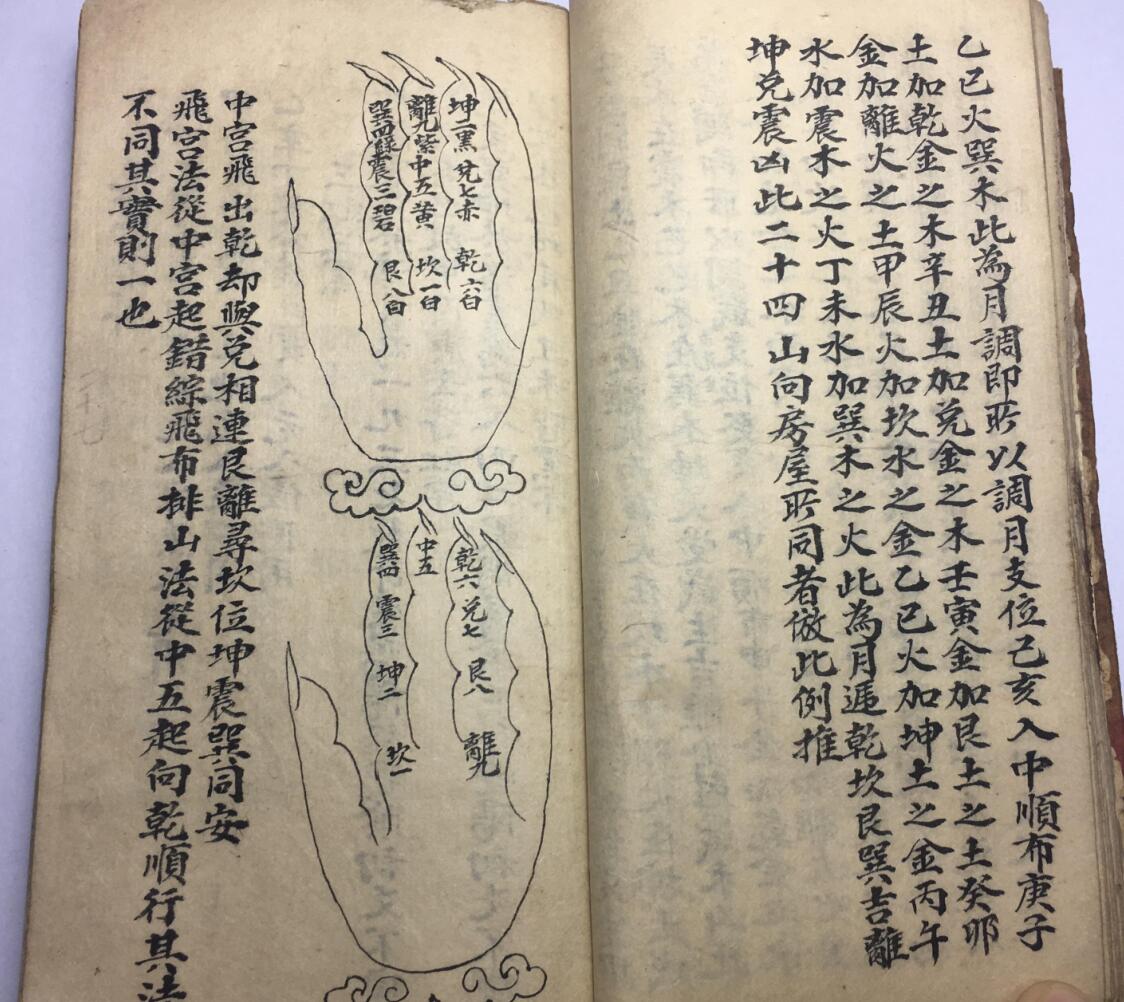 乙巳火巽木此為月調即所以調月支位己亥入中順布庚子
土加乾金之木辛丑土加兌金之木壬寅金加艮土之土癸卯
金加離火之土甲辰火加坎水之金乙巳火加坤土之金丙午
水加震木之火丁未水加巽木之火此為月乾坎艮巽吉離
坤兌震凶此二十四山向房屋所同者倣此例推
坤二黑 兌七赤 乾六白
離九紫 中五黃 坎一白
巽四綠 震三碧 艮八白
乾六 兌七 艮八 離九
中五
巽四 震三 坤二 坎一
中宮飛出乾却與兌相連艮離尋坎位坤震巽同安
飛宮法從中宮起錯綜飛布排山法從中五起向乾順行其法
不同其實則一也